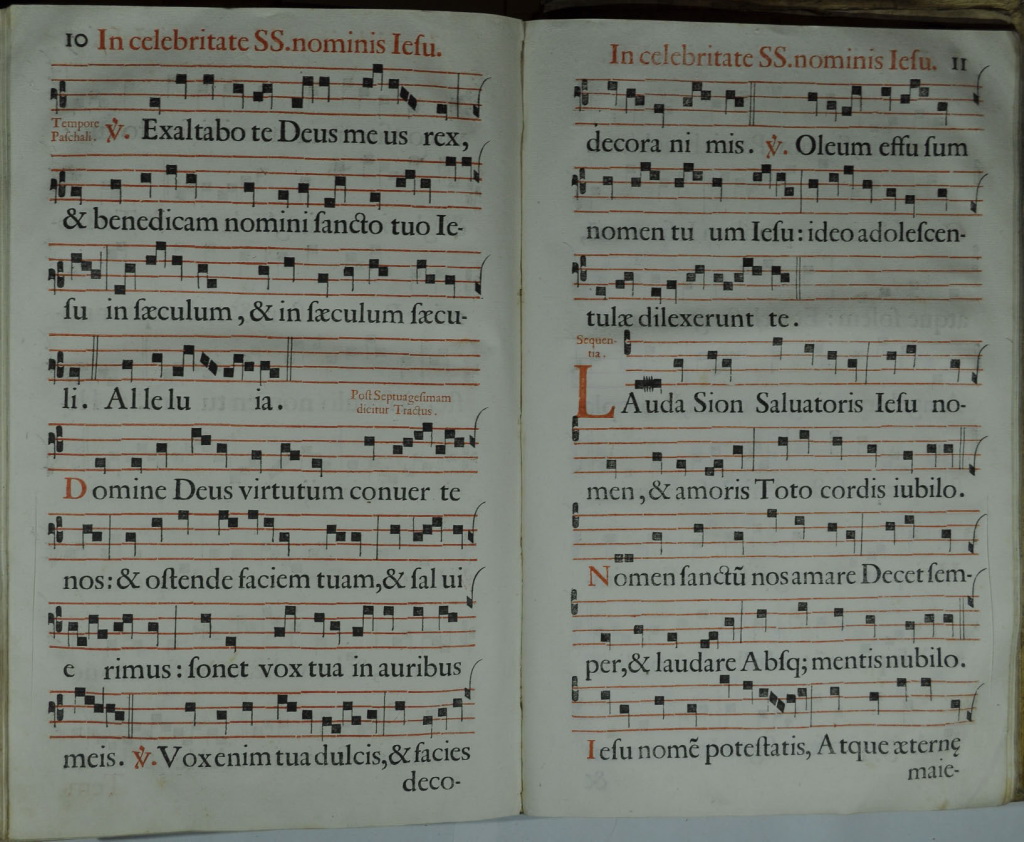 10 In celebritate SS.nominis Ieſu.
Tempore
Paſchali.
℣. Exaltabo te Deus me us rex,
& benedicam nomini ſancto tuo Ie-
ſu in ſæculum, & in ſæculum ſæcu-
li. Al le lu ia.
Poſt Septuageſimam
dicitur Tractus.
Domine Deus virtutum conuer te
nos: & oſtende faciem tuam, & ſal ui
e rimus: ſonet vox tua in auribus
meis. ℣. Vox enim tua dulcis, & facies
deco-
In celebritate SS.nominis Ieſu. 11
decora ni mis. ℣. Oleum effu ſum
nomen tu um Ieſu: ideo adoleſcen-
tulæ dilexerunt te.
Sequen-
tia.
LAuda Sion Saluatoris Ieſu no-
men, & amoris Toto cordis iubilo.
Nomen ſanctũ nos amare Decet ſem-
per, & laudare Abſq; mentis nubilo.
Ieſu nomẽ poteſtatis, Atque æternę
maie-